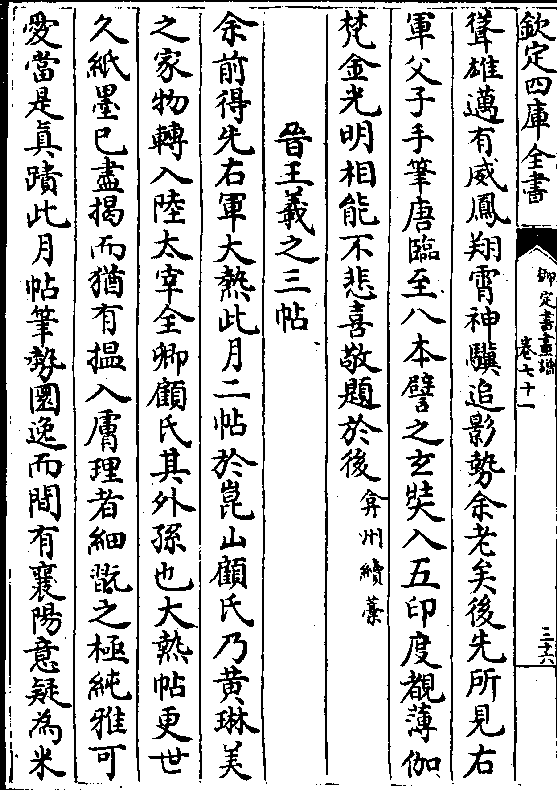 欽定四庫全書
御定書畫譜
卷七十一
三十六
聳雄邁有威鳳翔霄神驥追影勢余老矣後先所見右
軍父子手筆唐臨至八本譬之玄奘入五印度覩薄伽
梵金光明相能不悲喜敬題於後弇州續藁
晉王羲之三帖
余前得先右軍大熱此月二帖於崑山顧氏乃黄琳美
之家物轉入陸太宰全卿顧氏其外孫也大熱帖更世
久紙墨已盡揭而猶有揾入膚理者細翫之極純雅可
愛當是真蹟此月帖筆勢圓逸而間有襄陽意疑為米